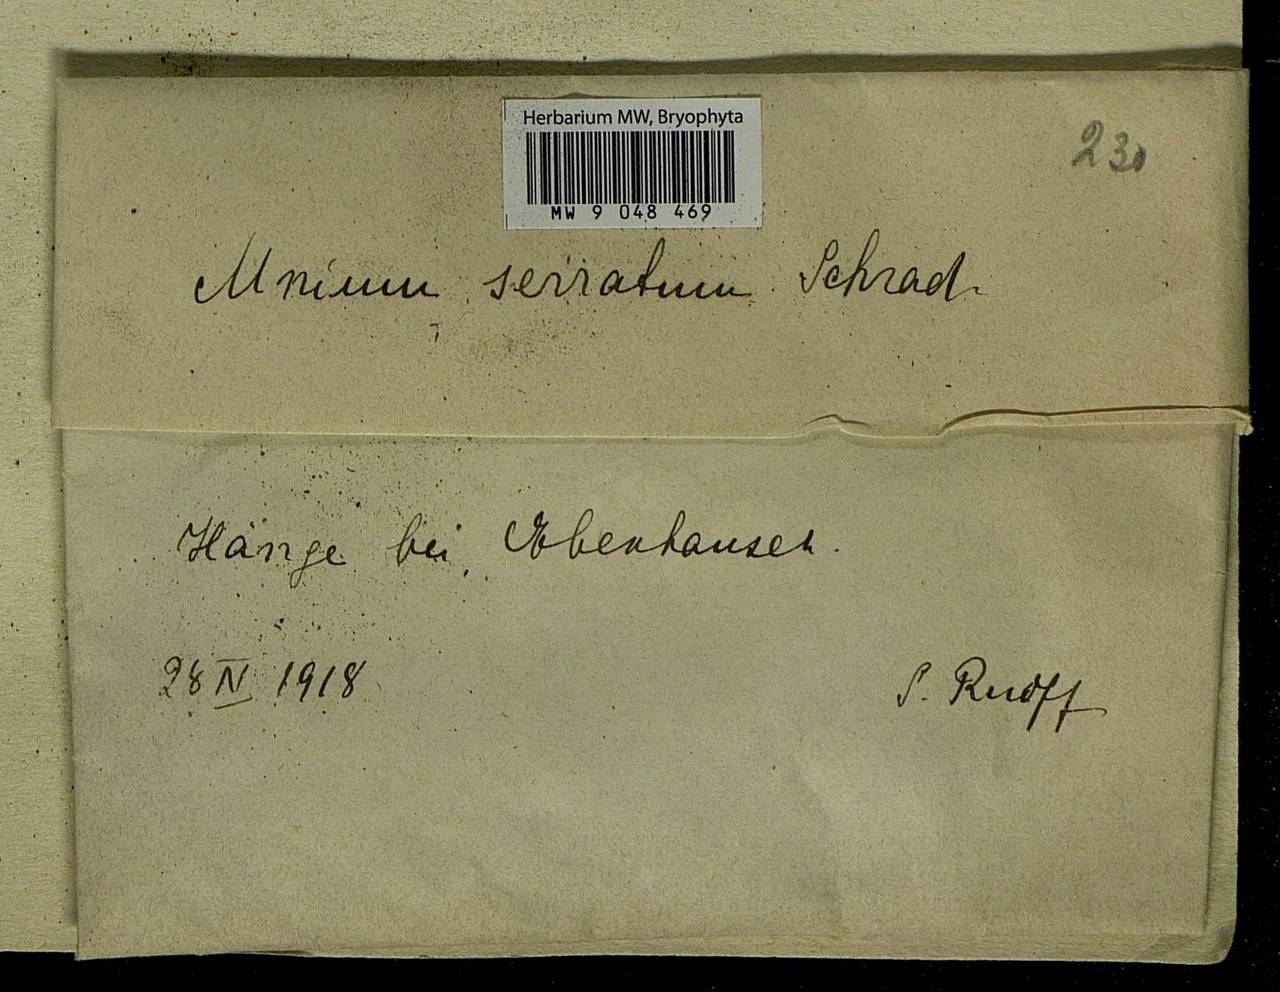 Herbarium MW, Bryophyta
MW 9 048 469
230
Mnium serratum Schrad.
Hänge bei Ebenhausen.
28 IV 1918
S. Ruoff